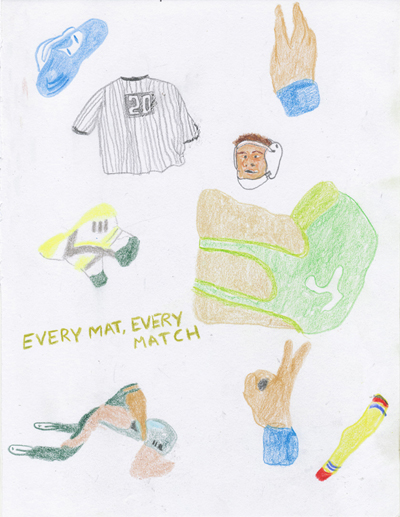 20
EVERY MAT, EVERY
MATCH